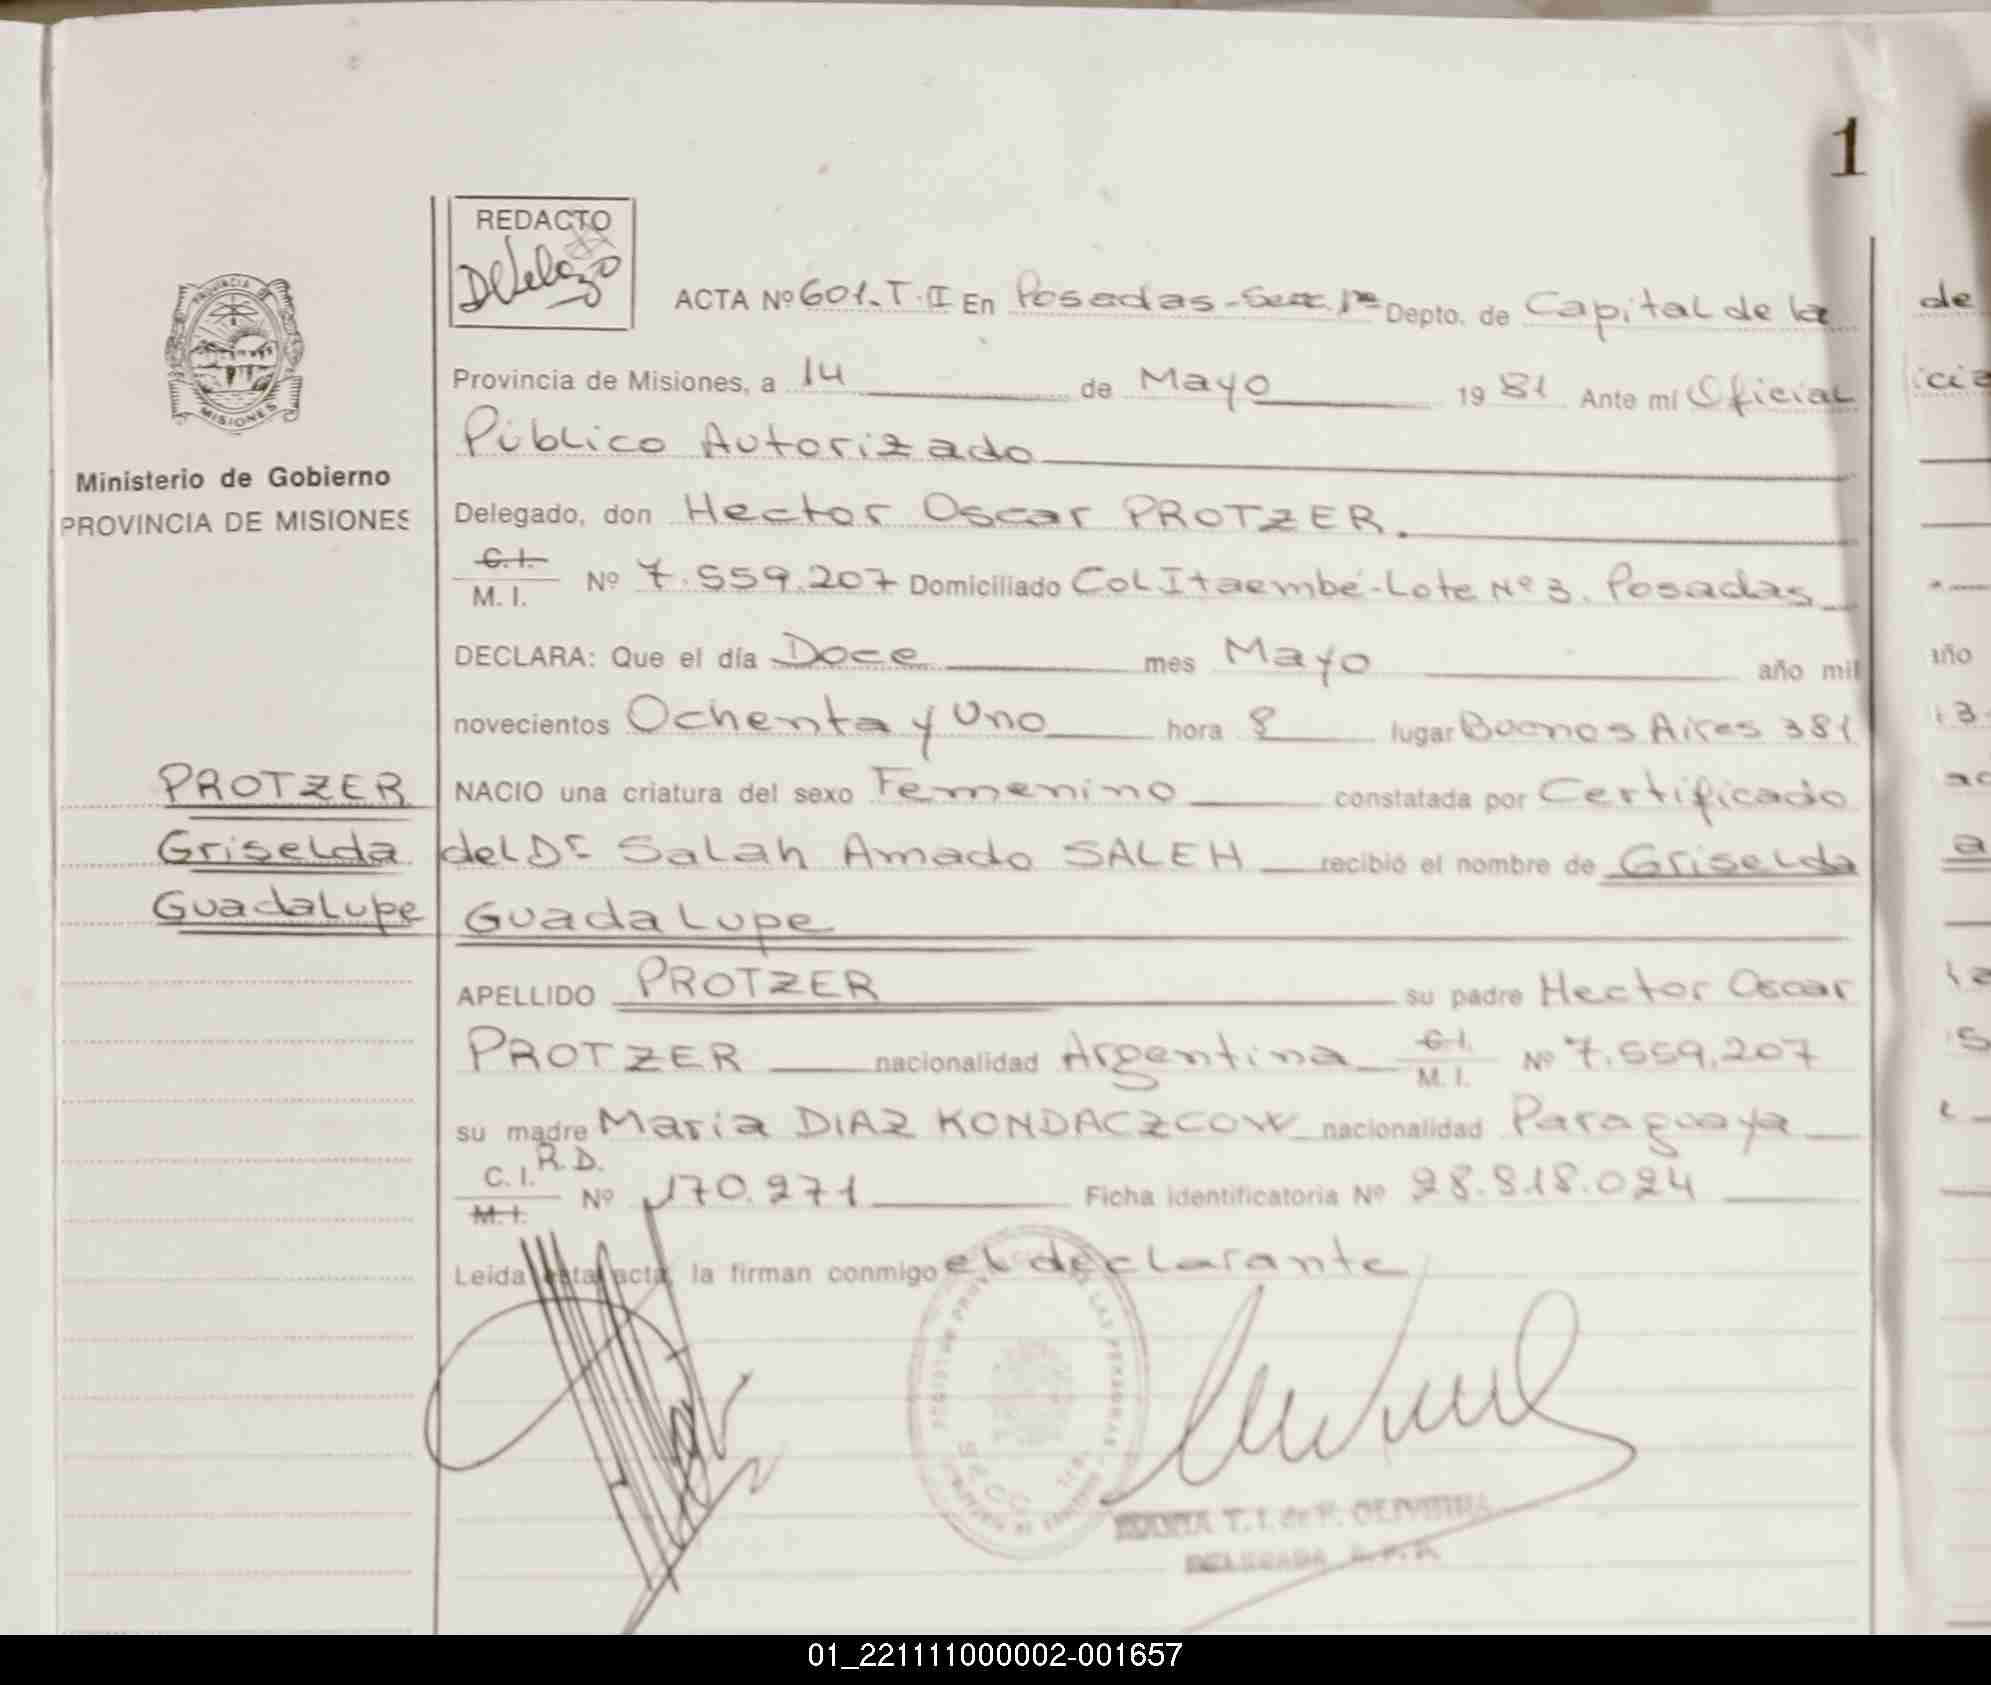 1
REDACTO
DVelazo
ACTA Nº 601.T.II En Posadas-Secc.1ra Depto. de Capital de la
Provincia de Misiones, a 14 de Mayo 1981 Ante mí Oficial
Público Autorizado
Delegado, don Hector Oscar PROTZER.
C.I. M.I. Nº 7.559.207 Domiciliado Col Itaembé-Lote Nº 3. Posadas
DECLARA: Que el día Doce mes Mayo año mil
novecientos Ochenta y Uno hora 8 lugar Buenos Aires 381
NACIO una criatura del sexo Femenino constatada por Certificado
del Dr Salah Amado SALEH recibió el nombre de Griselda
Guadalupe
APELLIDO PROTZER su padre Hector Oscar
PROTZER nacionalidad Argentina C.I. M.I. Nº 7.559.207
su madre Maria DIAZ KONDACZCOW nacionalidad Paraguaya
C.I. R.D. M.I. Nº 170.271 Ficha identificatoria Nº 28.818.024
Leida esta acta, la firman conmigo el declarante
PROVINCIA DE
MISIONES
Ministerio de Gobierno
PROVINCIA DE MISIONES
PROTZER
Griselda
Guadalupe
DE LAS PERSONAS
SECC. 1ra.
T. I. de F. OLIVEIRA
DELEGADA
de
año
01_221111000002-001657